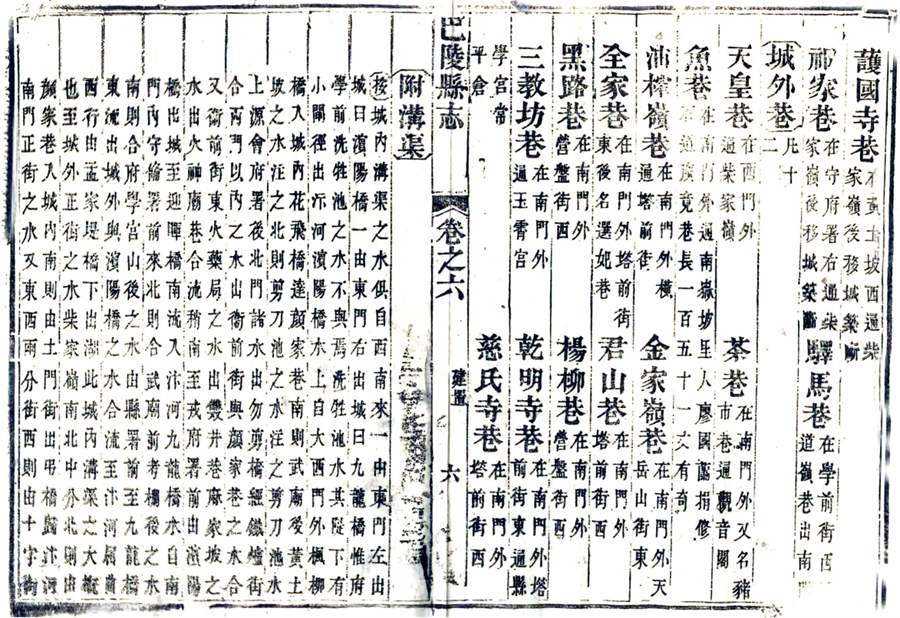 護國寺巷 在黃土坡西通柴家嶺後移城築斷
祁家巷 在守府署右通柴家嶺後移城築斷 驛馬巷 在學前街西道嶺巷出南
城外巷 二十
天皇巷 在西門外通柴家嶺 茶巷 在南門外又名豬市巷通觀音閣
魚巷 在南門外通南嶽坊 里人廖國 捐修 本道 巷長一百五十一丈有奇
油榨嶺巷 在南門外橫通塔前街 金家嶺巷 在南門外天岳山街東
全家巷 在南門外塔前街東後名選妃巷 君山巷 在南門外塔前街西
黑路巷 在南門外營盤街西 楊柳巷 在南門外營盤街西
三教坊巷 在南門外通玉霄宮 乾明寺巷 在南門外塔前街東通縣
學宮常平倉 慈氏寺巷 在南門外塔前街西
附溝渠
巴陵縣志 卷之六 建置 六
按城內溝渠之水俱自西南來一由東門左出
城曰濱陽橋一由東門右出城曰九龍橋惟府
學前洗牲池之水不與焉洗牲池水其隄下有
小閘徑出汴河濱陽橋水上自大西門外楓柳
橋入城內花飛橋達顏家巷南則武廟後黃土
坡之水注之北則剪刀池水注之剪刀池水
上源會府署後北門諸水出勿剪橋經鐵爐街
合兩門以內之水出衛前街與顏家巷之水合
又衛前街東火藥局之水出雙井巷麻家坡之
水出火神廟巷合流稍南至戎府署前由濱陽
橋出城至迎暉橋南流入汴河九龍橋水自南
門內守備署前來北則合武廟前考棚後之水
南則合府學宮山後之水由縣署前至九龍橋
東流出城外與濱陽橋之水合流至汴河
西行由孟家堤橋下出湖此城內溝渠之大概
也至城外正街之水柴家嶺南北中分北則出
顏家巷入城內南則由土門街出弔橋歸汴河
南門正街之水又東西兩分街西則由十字街